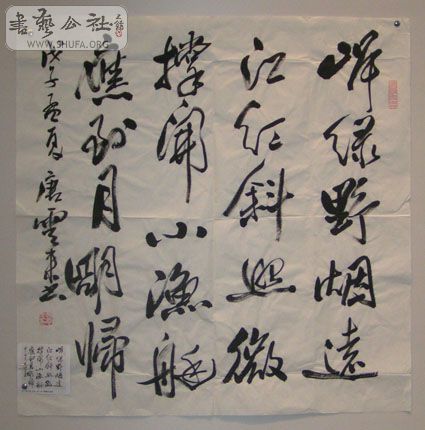 書藝公社
WWW.SHUFA.ORG
岸绿野烟遠
江红斜照微
撑開小漁艇
應到月明歸
戊子孟夏 唐雲来书